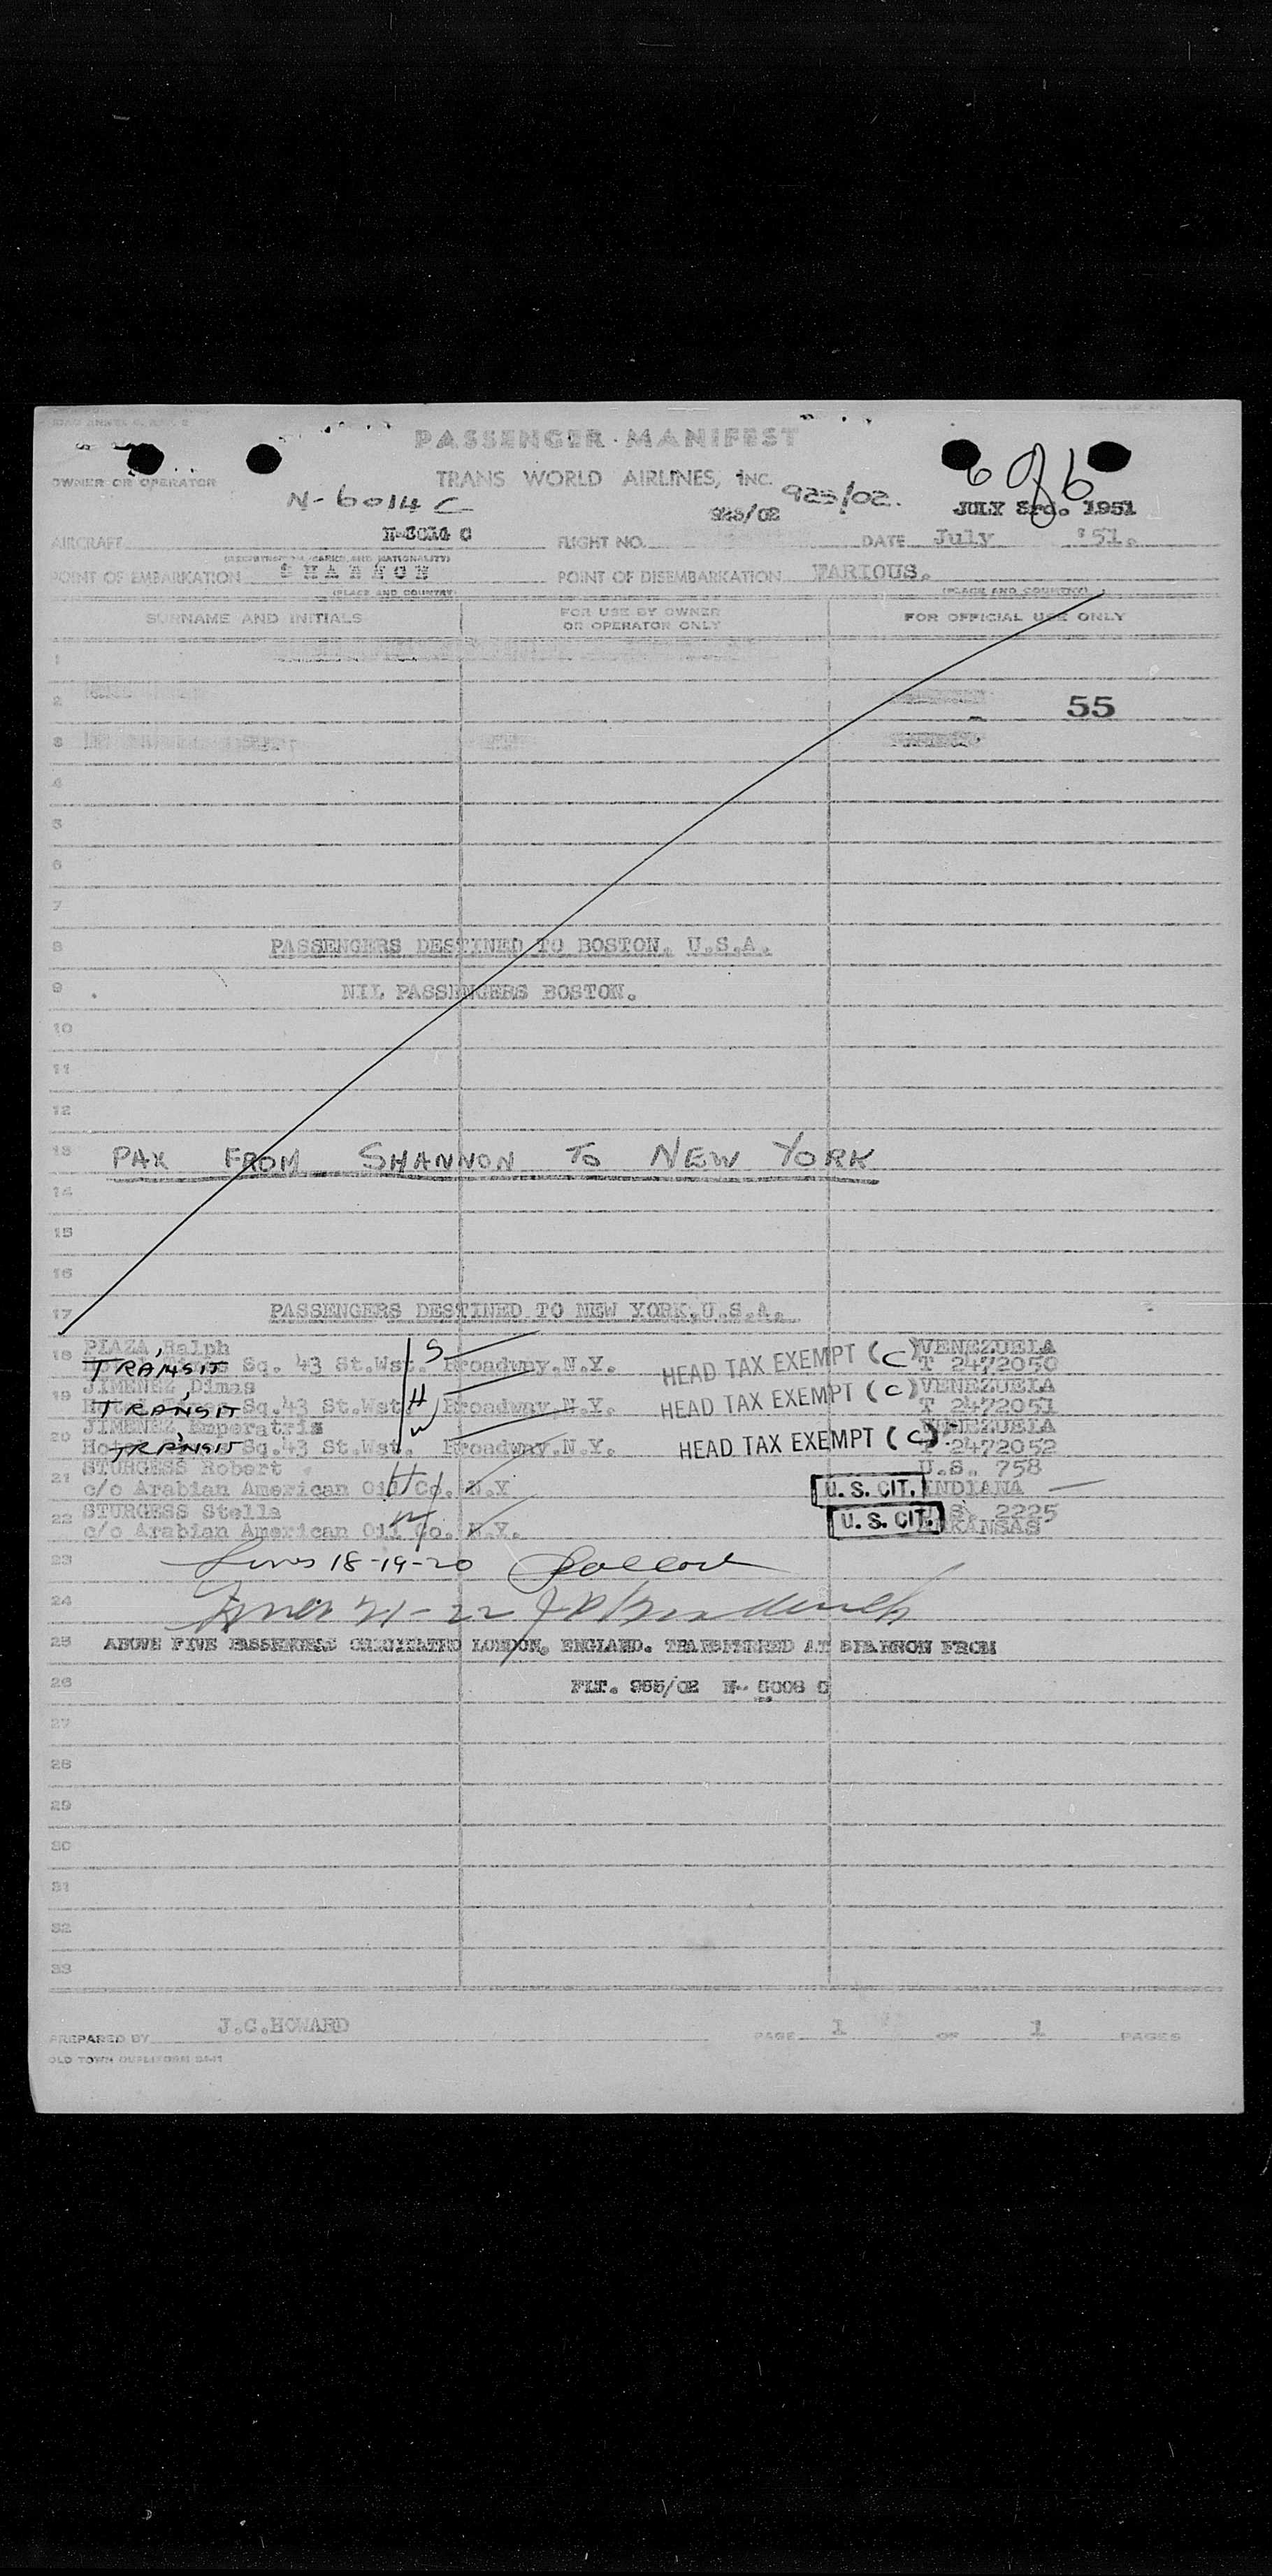 PASSENGER MANIFEST
OWNER OR OPERATOR TRANS WORLD AIRLINES, INC.
6 of 6
N-6014 C 925/02.
925/02 JULY 3rd. 1951
AIRCRAFT N-6014 C FLIGHT NO. DATE July '51.
POINT OF EMBARKATION SHANNON POINT OF DISEMBARKATION VARIOUS.
(PLACE AND COUNTRY) (PLACE AND COUNTRY)
SURNAME AND INITIALS FOR USE BY OWNER OR OPERATOR ONLY FOR OFFICIAL USE ONLY
1
2 55
3
4
5
6
7
8 PASSENGERS DESTINED TO BOSTON. U.S.A.
9 NIL PASSENGERS BOSTON.
10
11
12
13 PAX FROM SHANNON TO NEW YORK
14
15
16
17 PASSENGERS DESTINED TO NEW YORK,U.S.A.
18 PLAZA, Ralph S VENEZUELA
TRANSIT Sq. 43 St.Wst. Broadway.N.Y. HEAD TAX EXEMPT (C) T 2472050
19 JIMENEZ, Dimas H VENEZUELA
TRANSIT Sq.43 St.Wst. Broadway.N.Y. HEAD TAX EXEMPT (C) T 2472051
20 JIMENEZ, Emperatris W VENEZUELA
TRANSIT Sq.43 St.Wst. Broadway.N.Y. HEAD TAX EXEMPT (C) 2472052
21 STURGESS Robert H U.S. 758
c/o Arabian American Oil Co. N.Y U.S. CIT. INDIANA
22 STURGESS Stella W U.S. 2225
c/o Arabian American Oil Co. N.Y. U.S. CIT. ARKANSAS
23 Lines 18-19-20
24 Lines 21-22
25 ABOVE FIVE PASSENGERS ORIGINATED LONDON, ENGLAND. TRANSFERRED AT SHANNON FROM
26 FLT. 955/02 N- 6008 C
27
28
29
30
31
32
33
PREPARED BY J.C.HOWARD PAGE 1 OF 1 PAGES
OLD TOWN